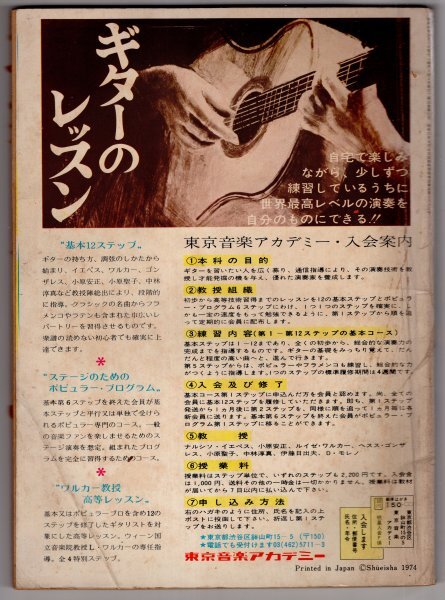 ギターの
レッスン
自宅で楽しみ
ながら、少しずつ
練習しているうちに
世界最高レベルの演奏を
自分のものにできる!!
"基本12ステップ"
ギターの持ち方、調弦のしかたから
始まり、イエペス、ワルカー、ゴン
ザレス、小原安正、小原聖子、中林
淳真など教授陣総出により、段階的
に指導。クラシックの名曲からフラ
メンコやラテンも含まれた巾広いレ
パートリーを習得させるものです。
楽譜の読めない初心者でも確実に上
達できます。
*
"ステージのための
ポピュラー・プログラム"
基本第6ステップを終えた会員が基
本ステップと平行又は単独で受けら
れるポピュラー専門のコース。一般
の音楽ファンを楽しませるためのス
テージ演奏を想定。組まれたプログ
ラムを完全に習得するためのコース。
*
"ワルカー教授
高等レッスン"
基本又はポピュラープロを含め12の
ステップを修了したギタリストを対
象にした高等レッスン。ウィーン国
立音楽院教授L・ワルカーの専任指
導。全4特別ステップ。
東京音楽アカデミー・入会案内
①本科の目的
ギターを習いたい人を広く募り、通信指導により、その演奏技術を教
授し才能発掘の機を与え、優れた演奏家を養成します。
②教授組織
初歩から高等技術習得までのレッスンを12の基本ステップとポピュラ
ー・プログラム6ステップにわけ、1つ1つのステップを確実に、し
かも一定の速度をもって勉強できるように、第1ステップから順を追
って定期的に会員に配布します。
③練習内容(第1－第12ステップの基本コース)
基本ステップは1－12まであり、全くの初歩から、総合的な演奏力の
完成までを指導するものです。ギターの基礎をみっちり覚えて、だん
だんと程度の高い曲へと、進んで行きます。
第5ステップからは、ポピュラーやフラメンコも練習し、総合的な力
がつくように指導します。1つのステップの標準履修期間は4週間です。
④入会及び修了
基本コース第1ステップに申込んだ方を会員と認めます。尚、全ての
会員に基本12ステップを履修していただきます。そのうち、第1ステップ
発送から1カ月後に第2ステップを、同様に順を追って1カ月毎に各
会員に送ります。基本第6ステップを終えた会員がポピュラー・プ
ログラム第1ステップに移ることができます。
⑤教授
ナルシソ・イエペス、小原安正、ルイゼ・ワルカー、ヘスス・ゴンザ
レス、小原聖子、中林淳真、伊藤日出夫、D・モレノ
⑥授業料
授業料はステップ単位で、いずれのステップも2,200円です。入会金
は1,000円、送料その他一時金は一切かかりません。授業料は教材
が届いてから7日以内に払い込んで下さい。
⑦申し込み方法
右のハガキのように住所、氏名を記入の上
ポストに投函して下さい。折返し第1ステッ
プをお送りします。
★東京都渋谷区鉢山町15－5(〒150)
★電話でも受付けます03(462)5711－3
東京音楽アカデミー
郵便はがき
150
東京都渋谷区
鉢山町15の5
東京音楽
アカデミー
入会します
住所・郵便番号
氏名・年令
Printed in Japan ©Shūeisha 1974